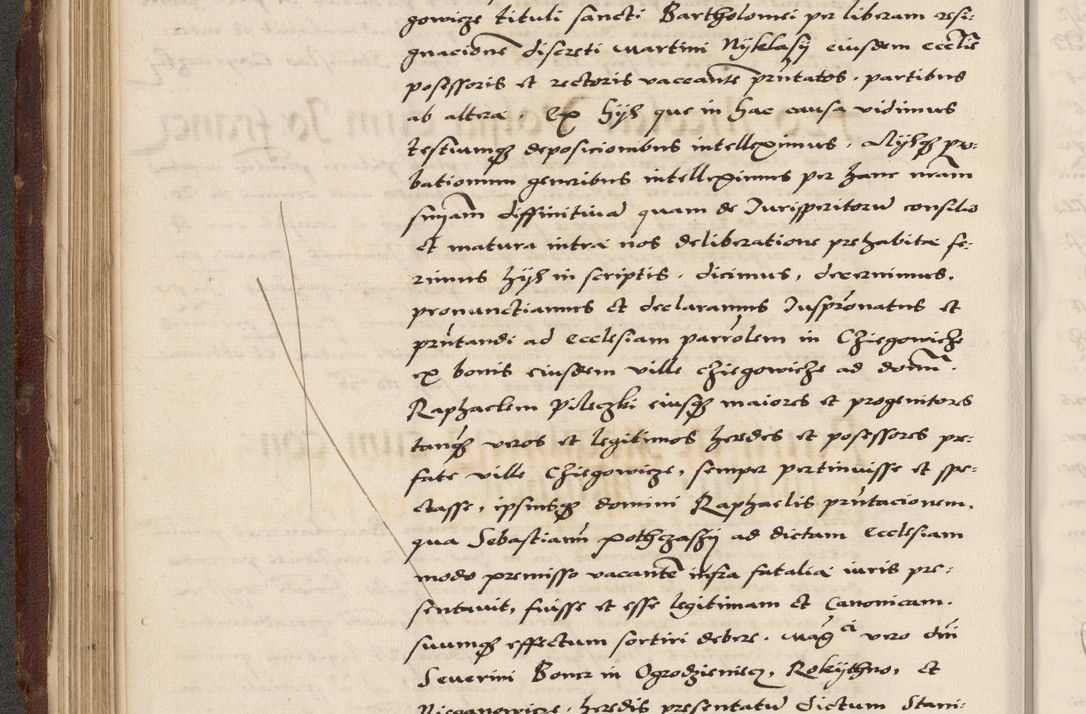 gowicze tituli sancti Bartholomei per liberam resi-
gnacionē discreti Martini Nyklasÿ eiusdem eccliē
possessoris et rectoris vaccantē pn̄tatos. partibus
ab altera. Ex hijs que in hac causa vidimus
testiumqȝ deposicionibus intelleximus. Alijsqȝ pro-
bationum generibus intelleximus per hanc nr̄am
snÿam diffinitivā quam de Jurisperitorū consilio
et matura intra nos deliberatione prehabita fe-
rimus hijs in scriptis. dicimus, decernimus.
pronunctiamus et declaramus Juspr̄onatus et
pn̄tandi ad Ecclesiam parrōlem in Chiegowicze
ex bonis eiusdem ville Chiegowicze ad dom̄.
Raphaelem Pileczki eiusqȝ maiores et progenitores
tanqȝ veros et legitimos heredes et possessores pre-
fate ville Chiegowicze, semper pertinuisse et spe-
ctasse, ipsiusqȝ domini Raphaelis pn̄tacionem.
qua Sebastianū pothczaszÿ ad dictam Ecclesiam
modo premisso vacantē infra fatalia iuris pre-
sentavit, fuisse et esse legitimam et Canonicam.
suumqȝ effectum sortiri debere. Magci vero dn̄i
Severini Boner in Ogrodzieniecz, Rokÿthno, et
Bieganowicze heredis presentatū dictum Stani-